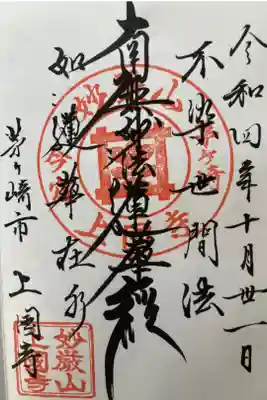 令和四年十月丗一日
不染世間法
南無妙法蓮華経
如蓮華在水
茅ヶ崎市 上國寺
妙厳山
上國寺